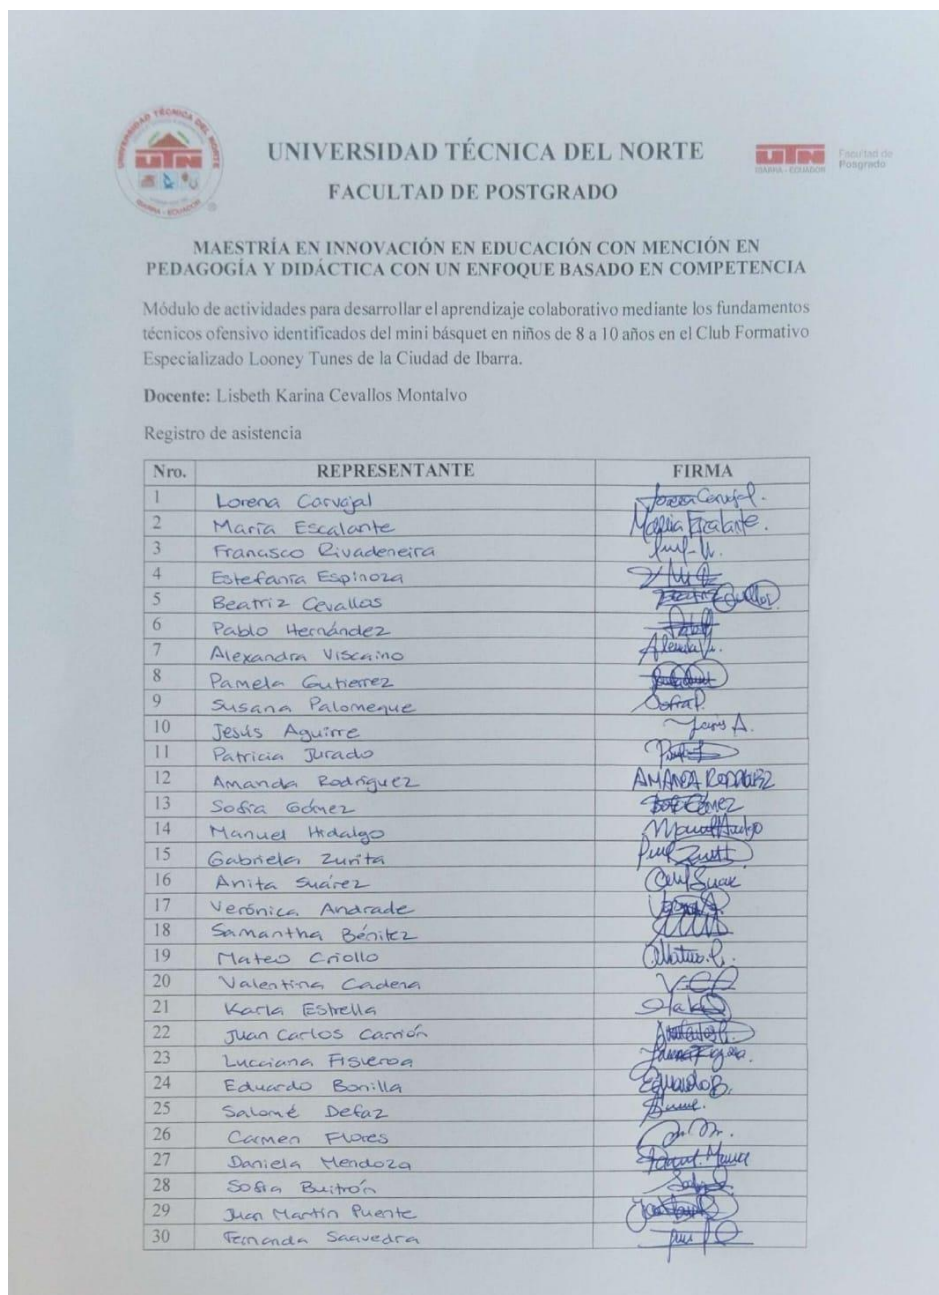 UNIVERSIDAD TÉCNICA DEL NORTE
UTN
IBARRA - ECUADOR
UNIVERSIDAD TÉCNICA DEL NORTE
FACULTAD DE POSTGRADO
UTN
IBARRA - ECUADOR
Facultad de
Posgrado
MAESTRÍA EN INNOVACIÓN EN EDUCACIÓN CON MENCIÓN EN
PEDAGOGÍA Y DIDÁCTICA CON UN ENFOQUE BASADO EN COMPETENCIA
Módulo de actividades para desarrollar el aprendizaje colaborativo mediante los fundamentos
técnicos ofensivo identificados del mini básquet en niños de 8 a 10 años en el Club Formativo
Especializado Looney Tunes de la Ciudad de Ibarra.
Docente: Lisbeth Karina Cevallos Montalvo
Registro de asistencia
Nro. REPRESENTANTE FIRMA
1 Lorena Carvajal
2 María Escalante María Escalante.
3 Francisco Rivadeneira
4 Estefanía Espinoza
5 Beatriz Cevallos
6 Pablo Hernández
7 Alexandra Viscaino
8 Pamela Gutierrez
9 Susana Palomeque
10 Jesús Aguirre Jesús A.
11 Patricia Jurado
12 Amanda Rodríguez AMANDA RODRÍGUEZ
13 Sofía Gómez
14 Manuel Hidalgo Manuel Hidalgo
15 Gabriela Zurita
16 Anita Suárez
17 Verónica Andrade
18 Samantha Bénitez
19 Mateo Criollo
20 Valentina Cadena
21 Karla Estrella
22 Juan Carlos Carrión
23 Lucciana Figueroa
24 Eduardo Bonilla Eduardo B.
25 Salomé Defaz
26 Carmen Flores
27 Daniela Mendoza
28 Sofia Buitrón
29 Juan Martín Puente
30 Fernanda Saavedra